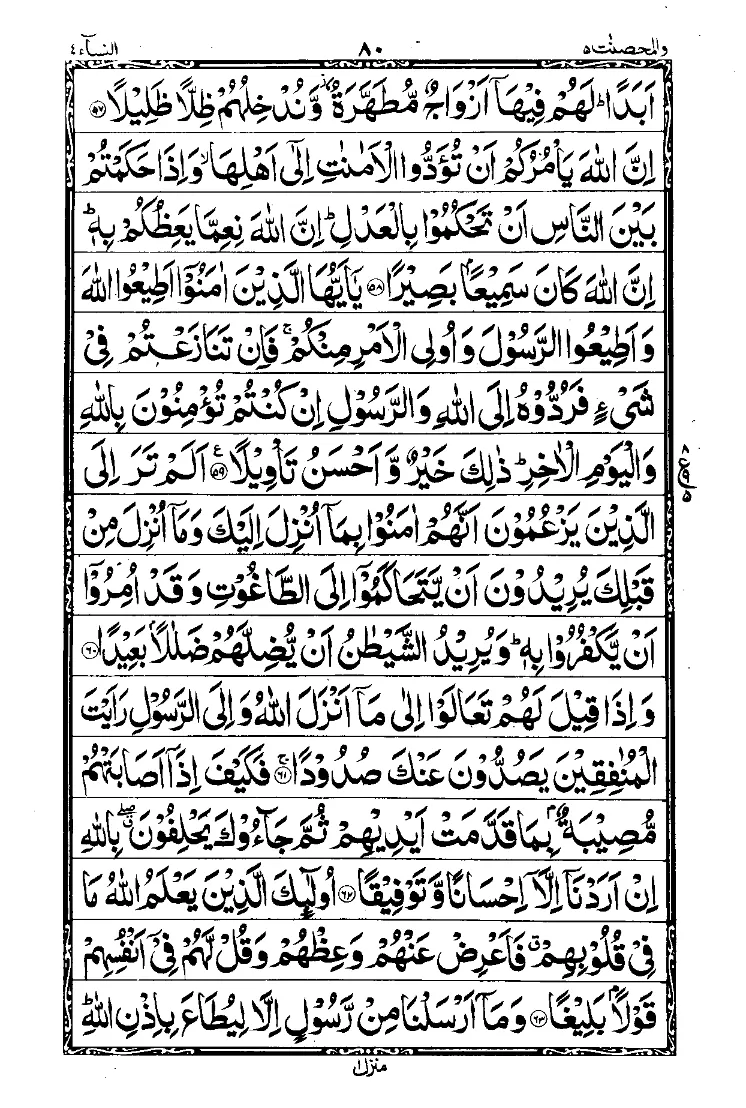 والمحصنت ٥ ٨٠ النسآء ٤
اَبَدًا ؕ لَهُمْ فِيْهَاۤ اَزْوَاجٌ مُّطَهَّرَةٌ ؗ وَّنُدْخِلُهُمْ ظِلًّا ظَلِيْلًا ﴿۵۷﴾
اِنَّ اللّٰهَ يَاْمُرُكُمْ اَنْ تُؤَدُّوا الْاَمٰنٰتِ اِلٰۤى اَهْلِهَا ۙ وَاِذَا حَكَمْتُمْ
بَيْنَ النَّاسِ اَنْ تَحْكُمُوْا بِالْعَدْلِ ؕ اِنَّ اللّٰهَ نِعِمَّا يَعِظُكُمْ بِهٖ ؕ
اِنَّ اللّٰهَ كَانَ سَمِيْعًۢا بَصِيْرًا ﴿۵۸﴾ يٰۤاَيُّهَا الَّذِيْنَ اٰمَنُوْۤا اَطِيْعُوا اللّٰهَ
وَاَطِيْعُوا الرَّسُوْلَ وَاُولِى الْاَمْرِ مِنْكُمْ ۚ فَاِنْ تَنَازَعْتُمْ فِىْ
شَىْءٍ فَرُدُّوْهُ اِلَى اللّٰهِ وَالرَّسُوْلِ اِنْ كُنْتُمْ تُؤْمِنُوْنَ بِاللّٰهِ
وَالْيَوْمِ الْاٰخِرِ ؕ ذٰلِكَ خَيْرٌ وَّاَحْسَنُ تَاْوِيْلًا ﴿۵۹﴾ ع اَلَمْ تَرَ اِلَى
الَّذِيْنَ يَزْعُمُوْنَ اَنَّهُمْ اٰمَنُوْا بِمَاۤ اُنْزِلَ اِلَيْكَ وَمَاۤ اُنْزِلَ مِنْ
قَبْلِكَ يُرِيْدُوْنَ اَنْ يَّتَحَاكَمُوْۤا اِلَى الطَّاغُوْتِ وَقَدْ اُمِرُوْۤا
اَنْ يَّكْفُرُوْا بِهٖ ؕ وَيُرِيْدُ الشَّيْطٰنُ اَنْ يُّضِلَّهُمْ ضَلٰلًۢا بَعِيْدًا ﴿۶۰﴾
وَاِذَا قِيْلَ لَهُمْ تَعَالَوْا اِلٰى مَاۤ اَنْزَلَ اللّٰهُ وَاِلَى الرَّسُوْلِ رَاَيْتَ
الْمُنٰفِقِيْنَ يَصُدُّوْنَ عَنْكَ صُدُوْدًا ﴿۶۱﴾ۚ فَكَيْفَ اِذَاۤ اَصَابَتْهُمْ
مُّصِيْبَةٌۢ بِمَا قَدَّمَتْ اَيْدِيْهِمْ ثُمَّ جَآءُوْكَ يَحْلِفُوْنَ ۖ بِاللّٰهِ
اِنْ اَرَدْنَاۤ اِلَّاۤ اِحْسَانًا وَّتَوْفِيْقًا ﴿۶۲﴾ اُولٰٓئِكَ الَّذِيْنَ يَعْلَمُ اللّٰهُ مَا
فِىْ قُلُوْبِهِمْ ۗ فَاَعْرِضْ عَنْهُمْ وَعِظْهُمْ وَقُلْ لَّهُمْ فِىْۤ اَنْفُسِهِمْ
قَوْلًۢا بَلِيْغًا ﴿۶۳﴾ وَمَاۤ اَرْسَلْنَا مِنْ رَّسُوْلٍ اِلَّا لِيُطَاعَ بِاِذْنِ اللّٰهِ ؕ
منزل ١